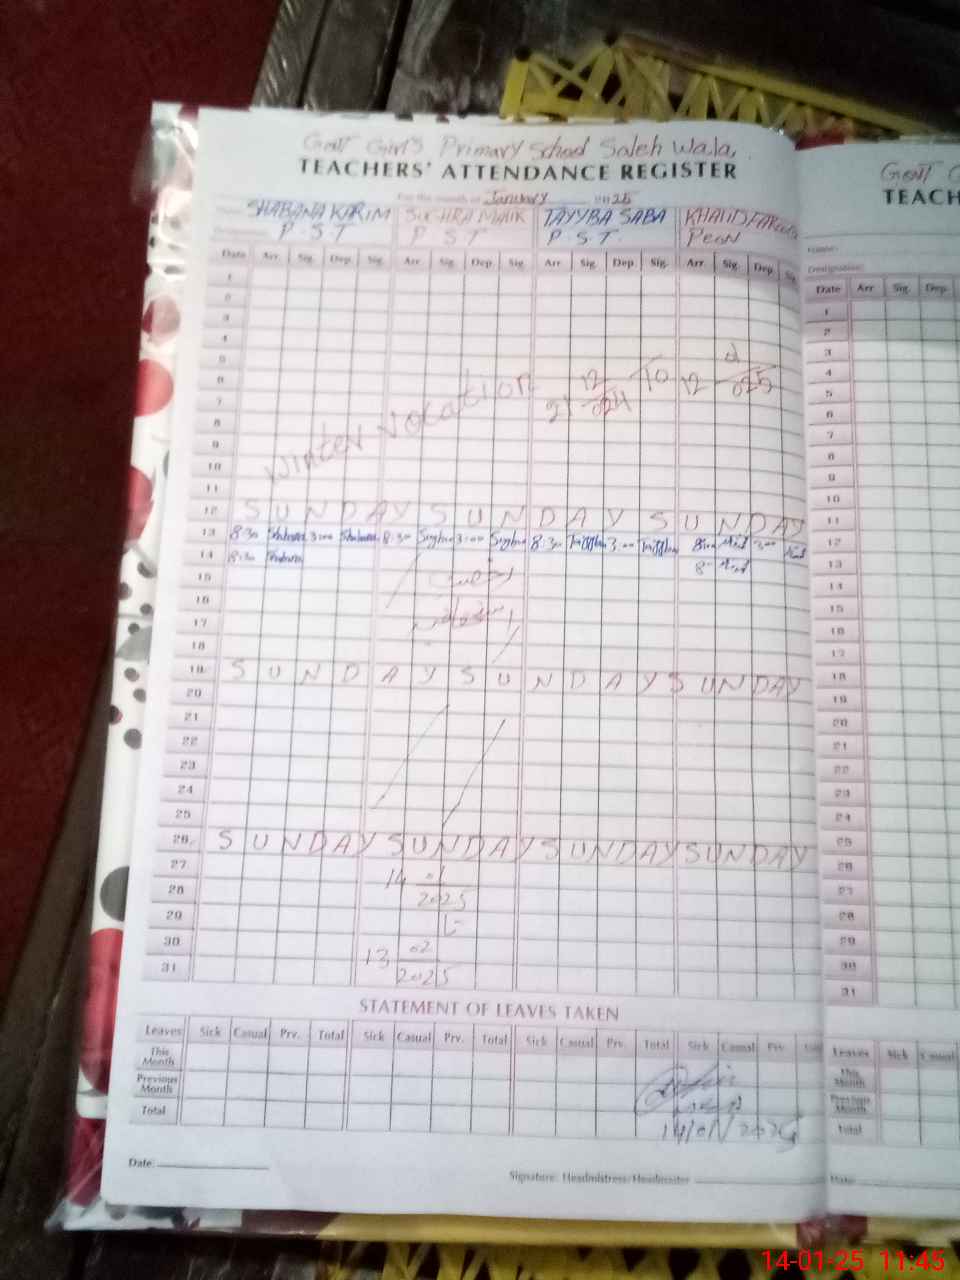 Govt Girls Primary School Saleh Wala,
TEACHERS' ATTENDANCE REGISTER
For the month of January 2025
SHABANA KARIM SUGHRA MALIK TAYYBA SABA KHALID FAROOQ
P.S.T P S T P.S.T. Peon
Date Arr. Sig. Dep. Sig. Arr. Sig. Dep. Sig. Arr. Sig. Dep. Sig. Arr. Sig. Dep.
1
2
3
4
5
6
7
8
9
10
11
Winter Vocation 21 12/024 To 12 /025
12 SUNDAY SUNDAY SUNDAY
13 8:30 Shabana 3:00 Shabana 8:30 3:00 8:30 3:00 8:00 3:00
14 8:30 Shabana
15
16
17
18
19 SUNDAY SUNDAY SUNDAY
20
21
22
23
24
25
26 SUNDAY SUNDAY SUNDAY SUNDAY
27
28
29
30
31
14 01/2025
13 02/2025
STATEMENT OF LEAVES TAKEN
Leaves Sick Casual Prv. Total Sick Casual Prv. Total Sick Casual Prv. Total Sick Casual Prv.
This Month
Previous Month
Total
14/01/2025
Date:
Signature: Headmistress/Headmaster
Govt G
TEACH
Name:
Designation:
Date Arr. Sig. Dep.
1
2
3
4
5
6
7
8
9
10
11
12
13
14
15
16
17
18
19
20
21
22
23
24
25
26
27
28
29
30
31
Leaves Sick Casual
This Month
Previous Month
Total
Date:
14-01-25 11:45